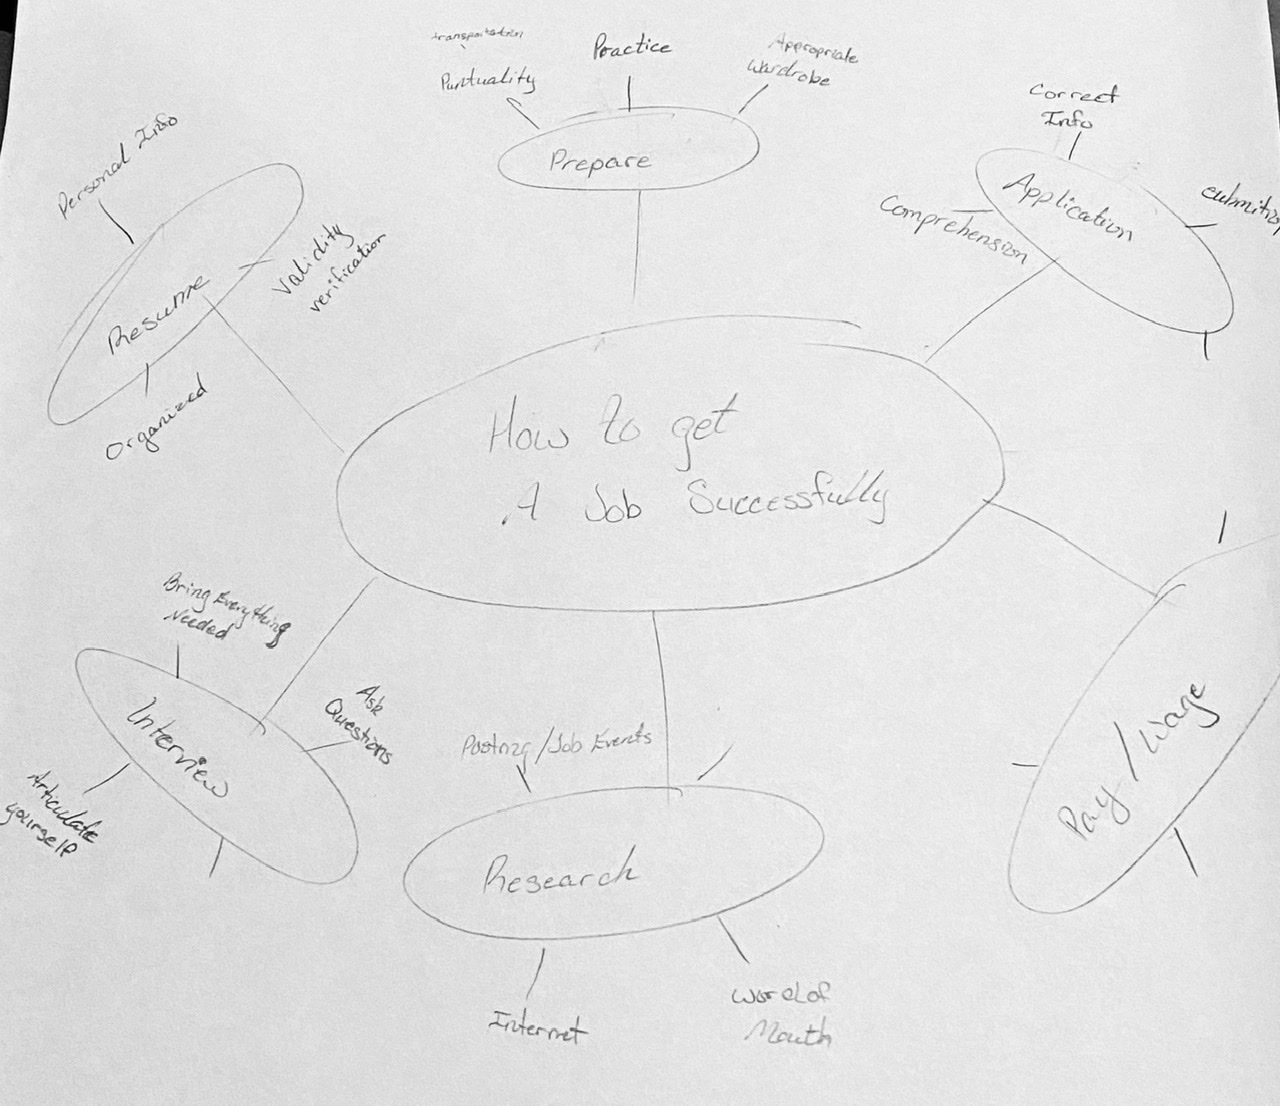 transportation
Puntuality
Practice
Appropriate
Wardrobe
Prepare
Correct
Info
Application
Comprehension
Personal Info
Resume
Validity
verification
Organized
How to get
A Job Successfully
Bring Everything
Needed
Interview
Ask
Questions
Articulate
yourself
Job Events
Research
Internet
Word of
Mouth
Pay/Wage